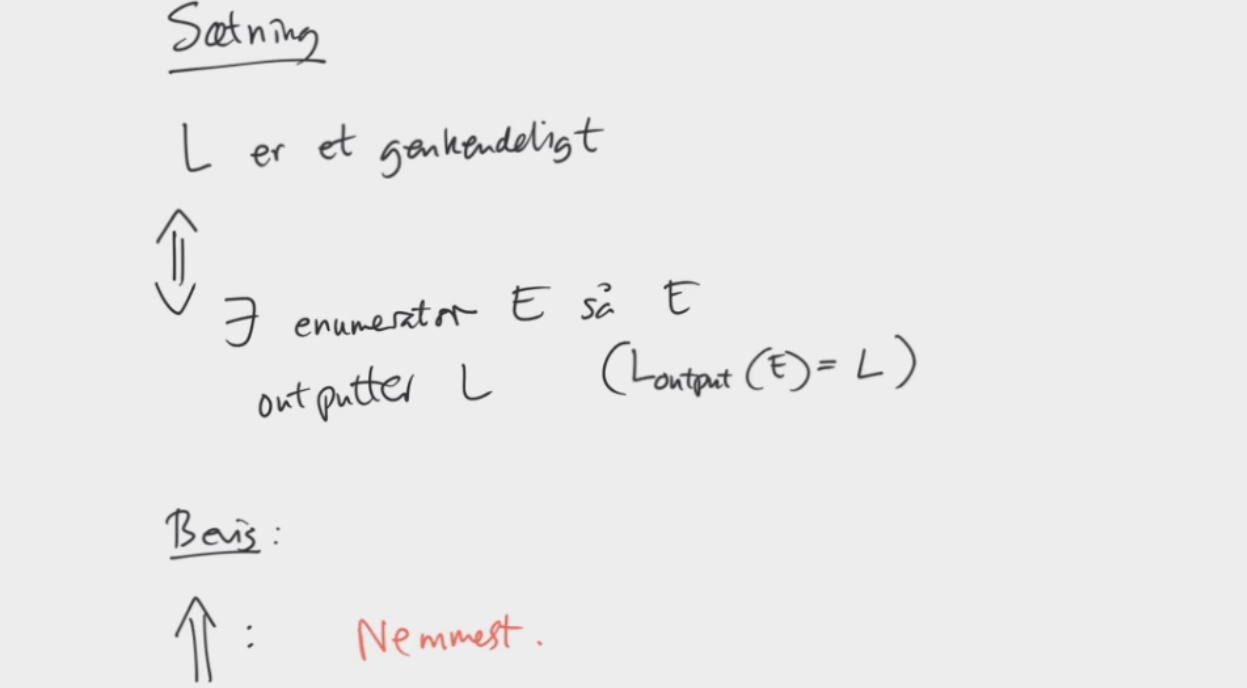 Sætning
L er et genkendeligt
⇕
∃ enumerator E så E
outputter L (L_output (E) = L)
Bevis:
⇑: Nemmest.